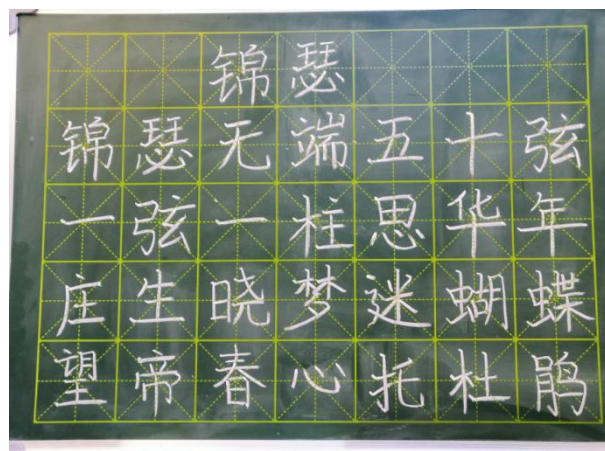 锦瑟
锦瑟无端五十弦
一弦一柱思华年
庄生晓梦迷蝴蝶
望帝春心托杜鹃